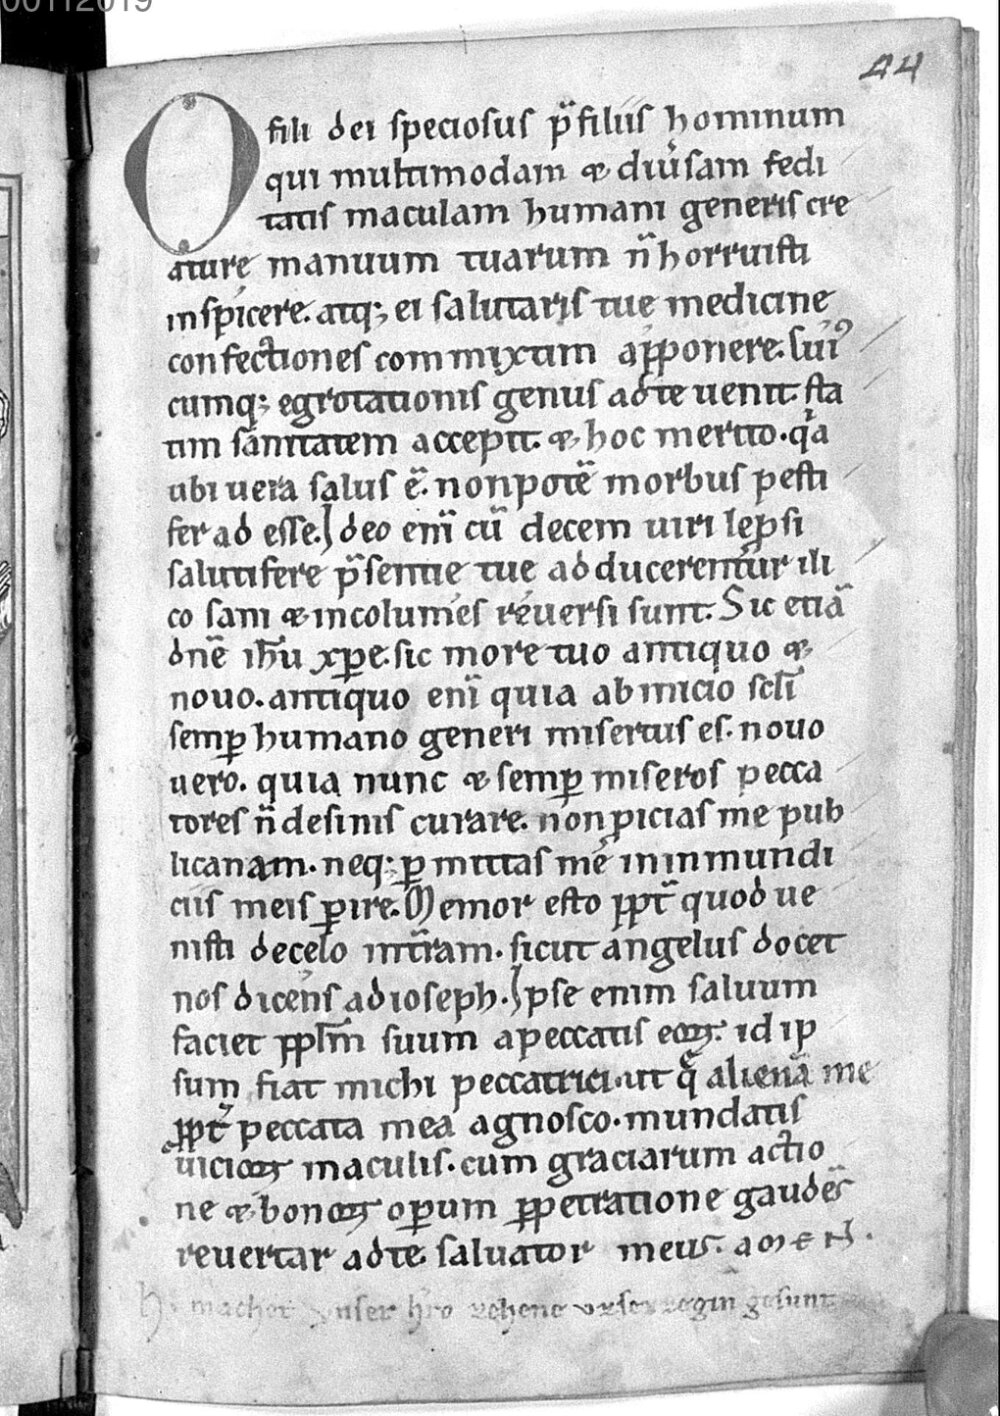 00112019
44
O fili dei speciosus p̄ filiis hominum
qui multimodam & diu̓sam fedi
tatis maculam humani generis cre
ature manuum tuarum n̄ horruisti
inspicere. atq; ei salutaris tue medicine
confectiones commixtim apponere. Cui᷒
cumq; egrotationis genus ad te uenit. sta
tim sanitatem accepit. & hoc merito. qͥa
ubi uera salus ē. non potē morbus pesti
fer ad esse. Ideo enī cū decem uiri lepsi
salutifere p̄sentie tue adducerent᷑ur ili
co sani & incolumes reuersi sunt. Sic etiā
dnē ih̄u xp̄e. sic more tuo antiquo &
nouo. antiquo enī quia ab inicio scl̄i
semꝑ humano generi misertus es. nouo
uero. quia nunc & semꝑ miseros pecca
tores n̄ desinis curare. non ꝓicias me pub
licanam. neq; ꝑmittas me in inmundi
ciis meis ꝑire. Memor esto ꝓpt̄ quod ue
nisti de celo in tr̄am. sicut angelus docet
nos dicens ad ioseph. Ipse enim saluum
faciet ppl̄m suum a peccatis eoꝝ. id ip
sum fiat michi peccatrici. ut q̄ alienā me
ꝓpt̄ peccata mea agnosco. mundatis
uicioꝝ maculis. cum graciarum actio
ne & bonoꝝ oꝑum ꝑpetratione gaudēs
reuertar ad te saluator meus. amen.
machet vnser gesunt